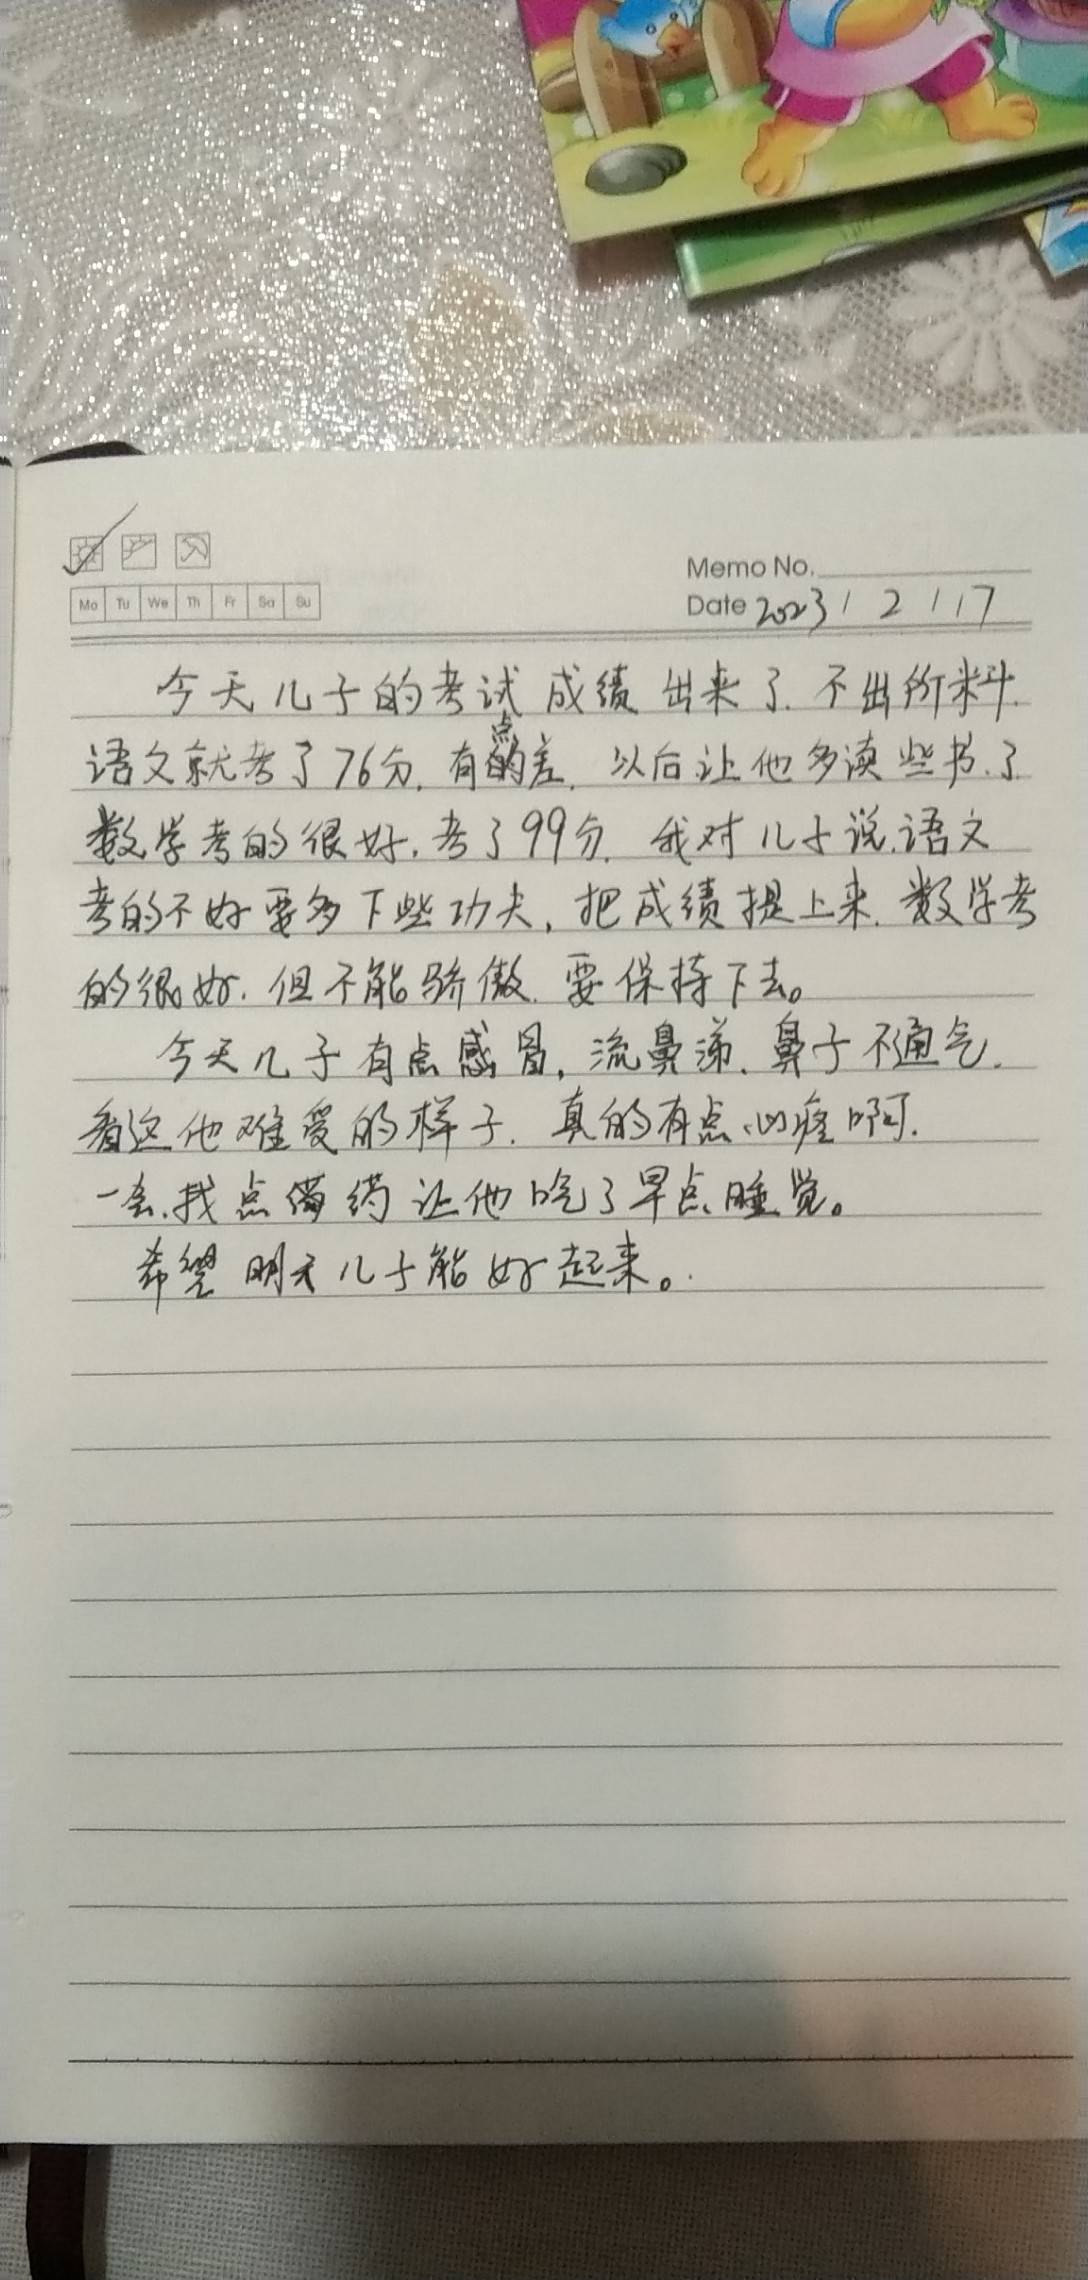 Mo Tu We Th Fr Sa Su
Memo No.
Date 2023 / 2 / 17
今天儿子的考试成绩出来了.不出所料.
语文就考了76分.有点差.以后让他多读些书.了
数学考的很好,考了99分.我对儿子说.语文
考的不好要多下些功夫,把成绩提上来.数学考
的很好.但不能骄傲.要保持下去。
今天儿子有点感冒,流鼻涕.鼻子不通气.
看这他难受的样子.真的有点心疼啊.
一会.找点药让他吃了早点睡觉。
希望明天儿子能好起来。